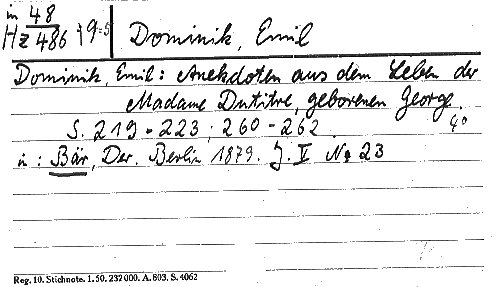 in 48
Hz 486 : 9=5 Dominik, Emil
Dominik, Emil: Anekdoten aus dem Leben der
Madame Dutitre, geborenen George.
S. 219-223; 260-262. 4°
in: Bär, Der. Berlin 1879. J. V No 23
Reg. 10. Stichnote. 1. 50. 232000. A. 803. S. 4062